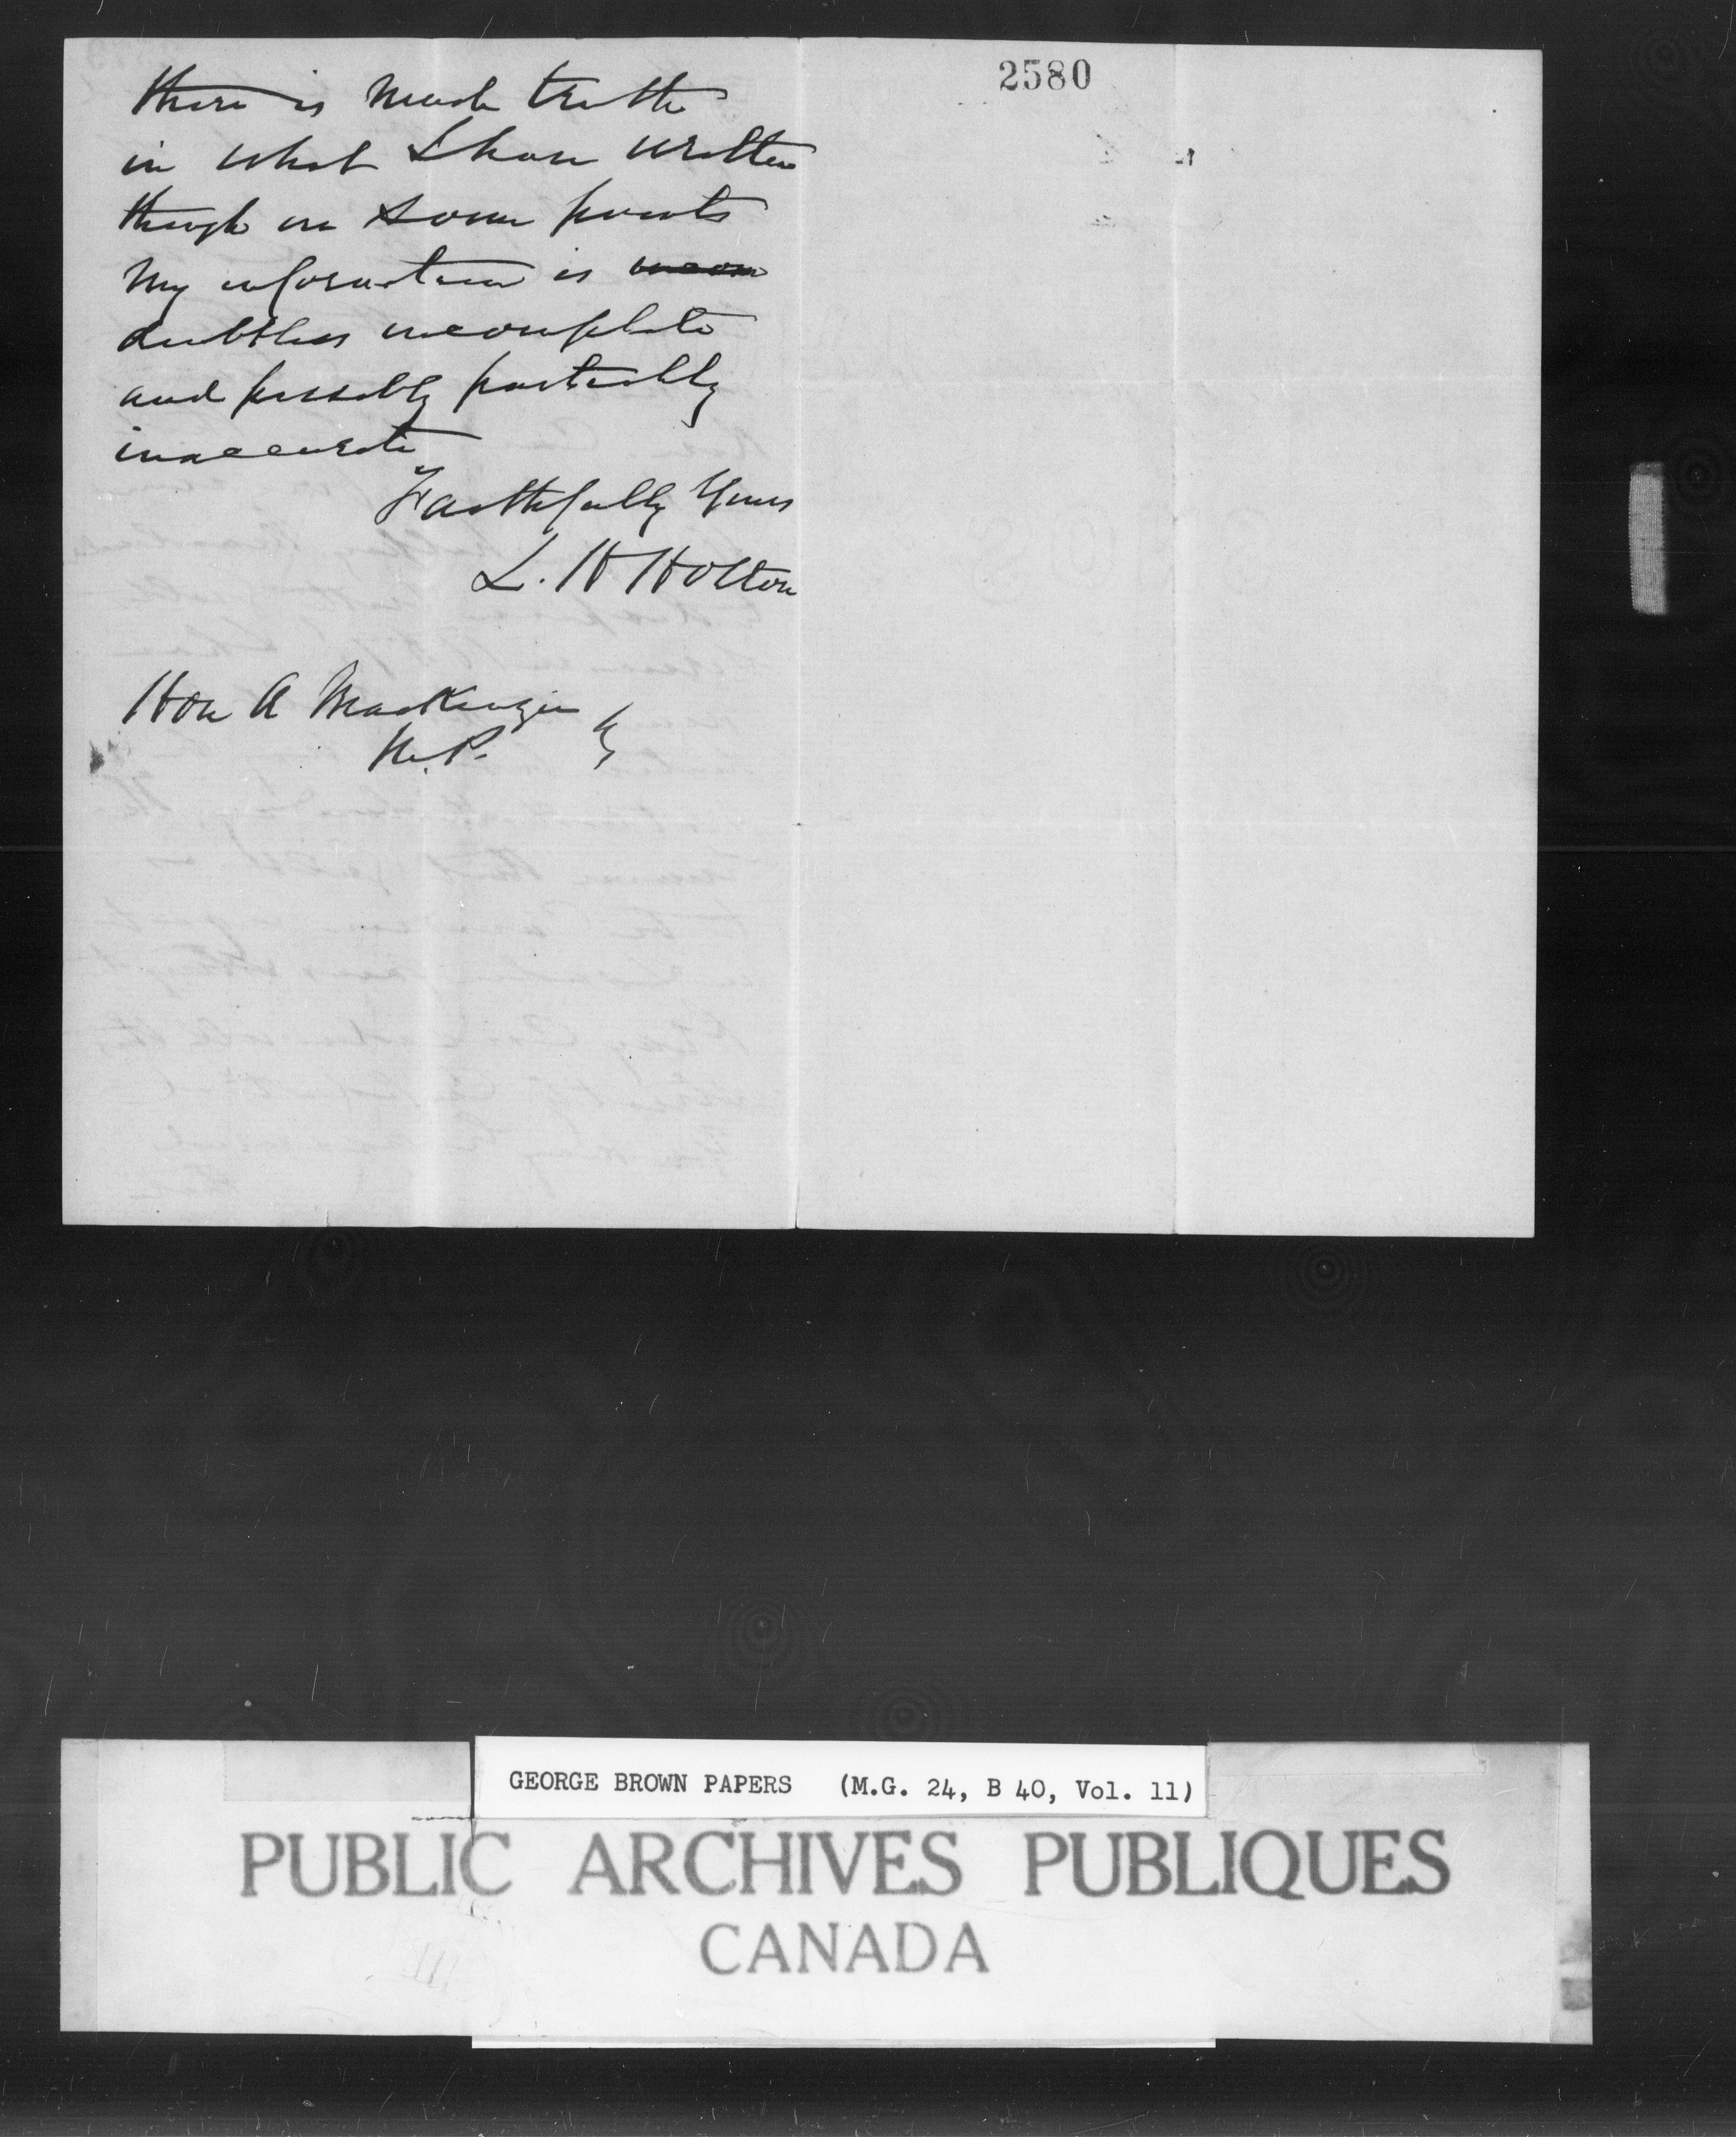 2580
there is much truth
in what I have written
though on some points
my information is incom
doubtless incomplete
and possibly partially
inaccurate
Faithfully Yours
L. H Holton
Hon A MacKenzie
M.P.
GEORGE BROWN PAPERS (M.G. 24, B 40, Vol. 11)
PUBLIC ARCHIVES PUBLIQUES
CANADA